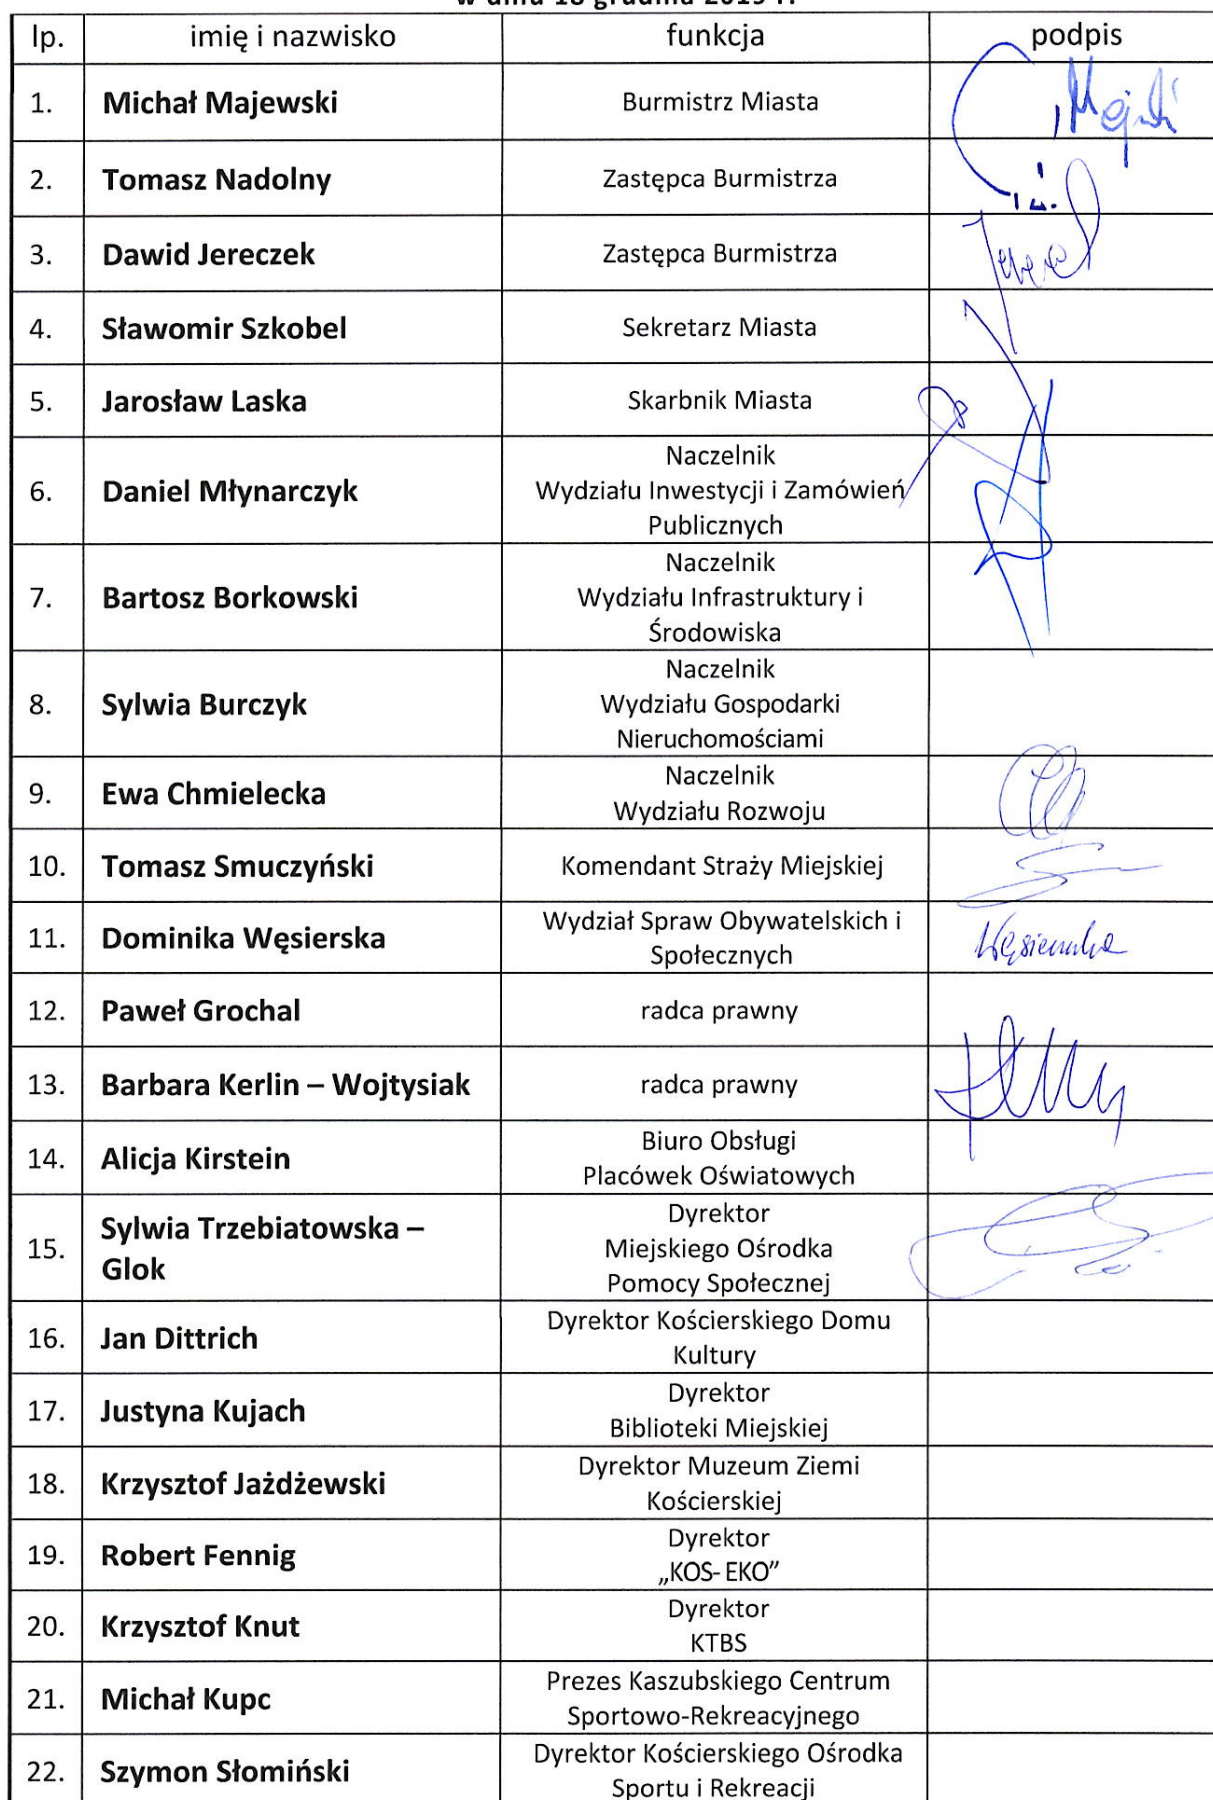 w dniu 18 grudnia 2019 r.
lp. imię i nazwisko funkcja podpis
1. Michał Majewski Burmistrz Miasta
2. Tomasz Nadolny Zastępca Burmistrza
3. Dawid Jereczek Zastępca Burmistrza
4. Sławomir Szkobel Sekretarz Miasta
5. Jarosław Laska Skarbnik Miasta
6. Daniel Młynarczyk Naczelnik
Wydziału Inwestycji i Zamówień
Publicznych
7. Bartosz Borkowski Naczelnik
Wydziału Infrastruktury i
Środowiska
8. Sylwia Burczyk Naczelnik
Wydziału Gospodarki
Nieruchomościami
9. Ewa Chmielecka Naczelnik
Wydziału Rozwoju
10. Tomasz Smuczyński Komendant Straży Miejskiej
11. Dominika Węsierska Wydział Spraw Obywatelskich i
Społecznych Węsierska
12. Paweł Grochal radca prawny
13. Barbara Kerlin – Wojtysiak radca prawny
14. Alicja Kirstein Biuro Obsługi
Placówek Oświatowych
15. Sylwia Trzebiatowska –
Glok Dyrektor
Miejskiego Ośrodka
Pomocy Społecznej
16. Jan Dittrich Dyrektor Kościerskiego Domu
Kultury
17. Justyna Kujach Dyrektor
Biblioteki Miejskiej
18. Krzysztof Jażdżewski Dyrektor Muzeum Ziemi
Kościerskiej
19. Robert Fennig Dyrektor
„KOS- EKO”
20. Krzysztof Knut Dyrektor
KTBS
21. Michał Kupc Prezes Kaszubskiego Centrum
Sportowo-Rekreacyjnego
22. Szymon Słomiński Dyrektor Kościerskiego Ośrodka
Sportu i Rekreacji